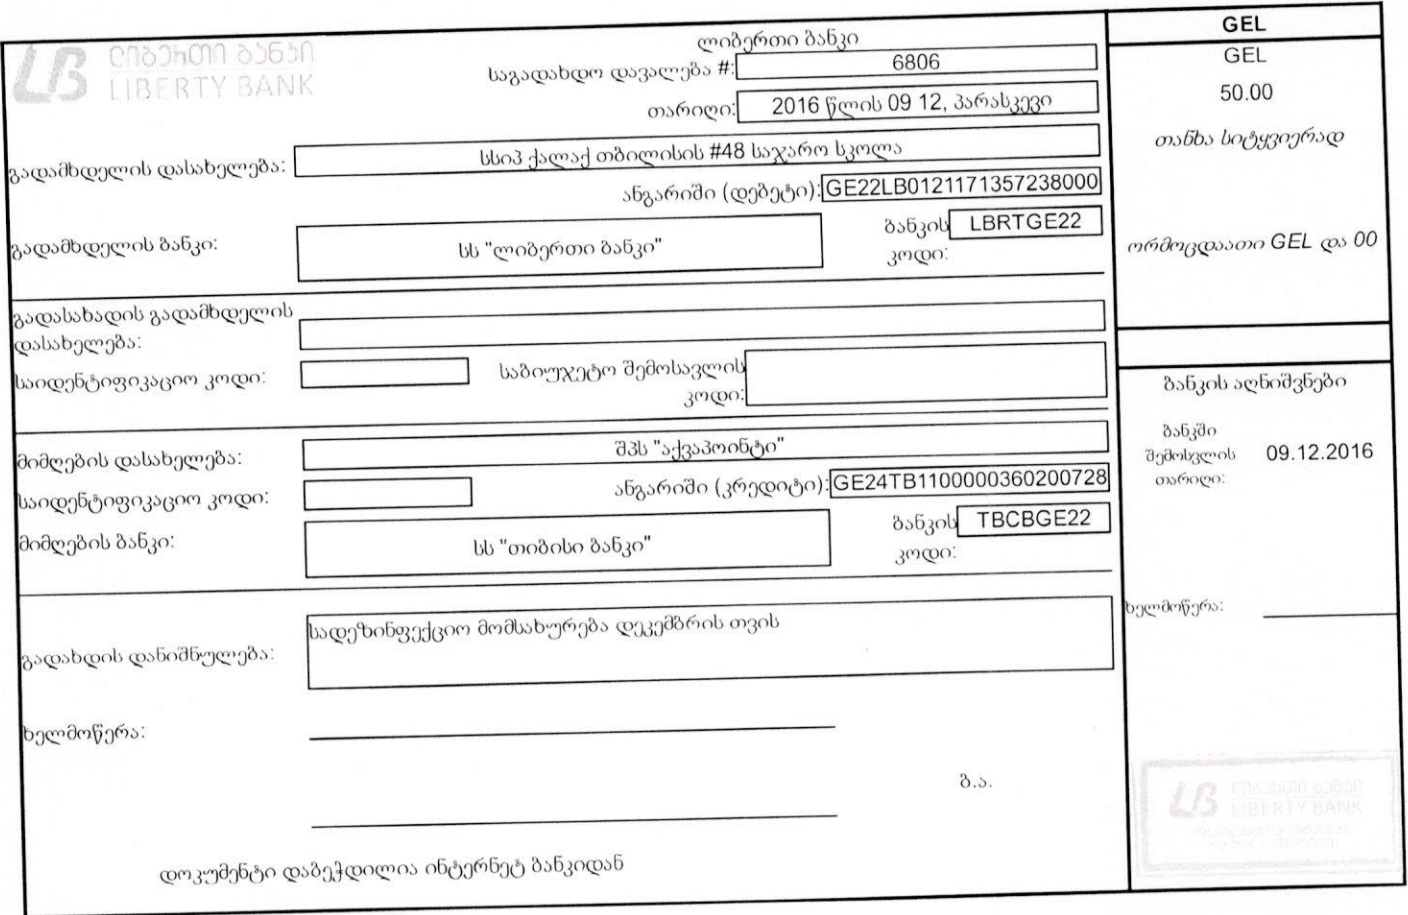 ლიბერთი ბანკი
LIBERTY BANK
ლიბერთი ბანკი
საგადახდო დავალება #: 6806
თარიღი: 2016 წლის 09 12, პარასკევი
გადამხდელის დასახელება: სსიპ ქალაქ თბილისის #48 საჯარო სკოლა
ანგარიში (დებეტი): GE22LB0121171357238000
გადამხდელის ბანკი: სს "ლიბერთი ბანკი" ბანკის კოდი: LBRTGE22
გადასახადის გადამხდელის
დასახელება:
საიდენტიფიკაციო კოდი: საბიუჯეტო შემოსავლის
კოდი:
მიმღების დასახელება: შპს "აქვაპოინტი"
საიდენტიფიკაციო კოდი: ანგარიში (კრედიტი): GE24TB1100000360200728
მიმღების ბანკი: სს "თიბისი ბანკი" ბანკის კოდი: TBCBGE22
გადახდის დანიშნულება: სადეზინფექციო მომსახურება დეკემბრის თვის
ხელმოწერა:
ბ.ა.
დოკუმენტი დაბეჭდილია ინტერნეტ ბანკიდან
GEL
GEL
50.00
თანხა სიტყვიერად
ორმოცდაათი GEL და 00
ბანკის აღნიშვნები
ბანკში
შემოსვლის 09.12.2016
თარიღი:
ხელმოწერა:
ლიბერთი ბანკი
LIBERTY BANK